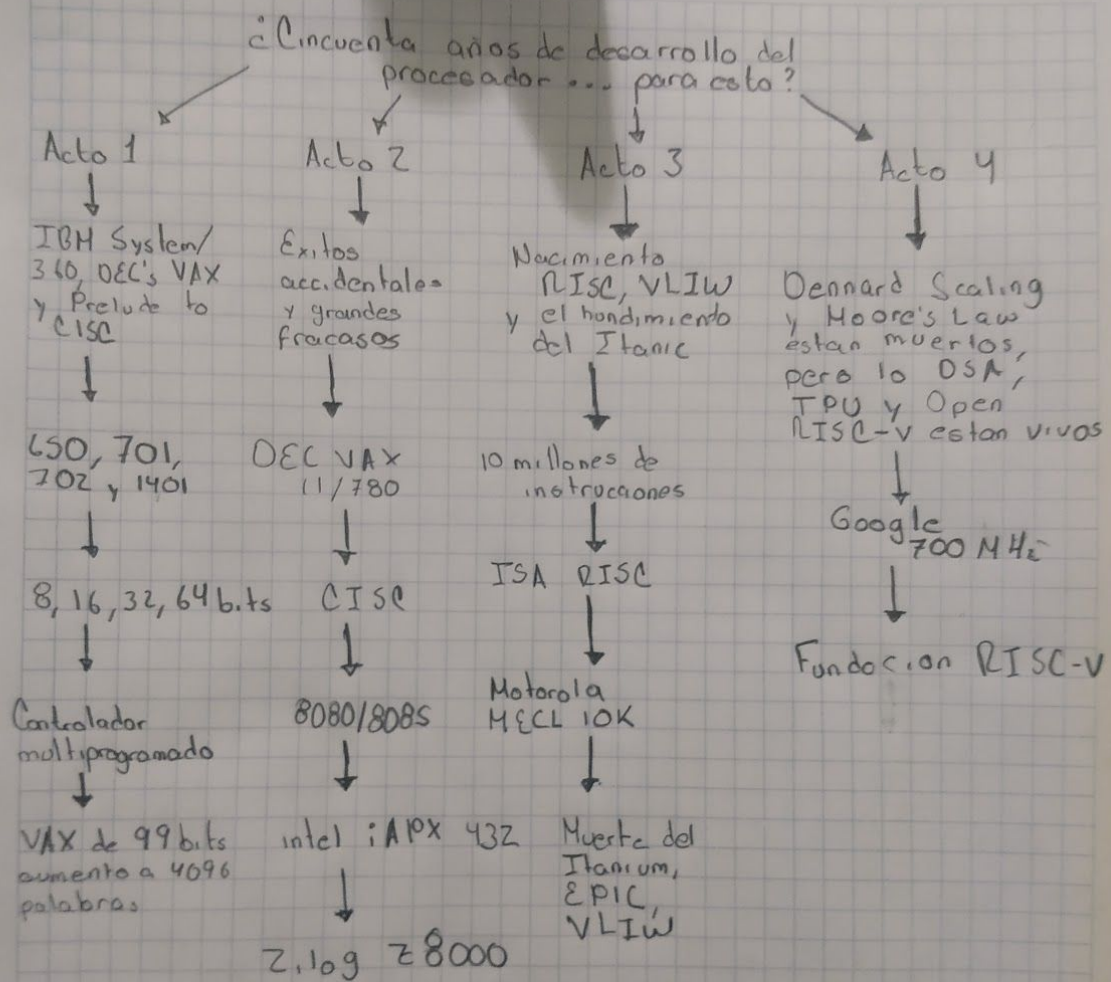 ¿Cincuenta años de desarrollo del
procesador... para esto?
Acto 1
IBM System/
360, DEC's VAX
y Prelude to
CISC
650, 701,
702 y 1401
8, 16, 32, 64 bits
Controlador
multiprogramado
VAX de 99 bits
aumento a 4096
palabras
Acto 2
Exitos
accidentales
y grandes
fracasos
DEC VAX
11/780
CISC
8080/8085
intel iAPX 432
Zilog Z8000
Acto 3
Nacimiento
RISC, VLIW
y el hundimiento
del Itanic
10 millones de
instrucciones
ISA RISC
Motorola
MECL 10K
Muerte del
Itanium,
EPIC,
VLIW
Acto 4
Dennard Scaling
y Moore's Law
estan muertos,
pero lo DSA,
TPU y Open
RISC-V estan vivos
Google
700 MHz
Fundacion RISC-V